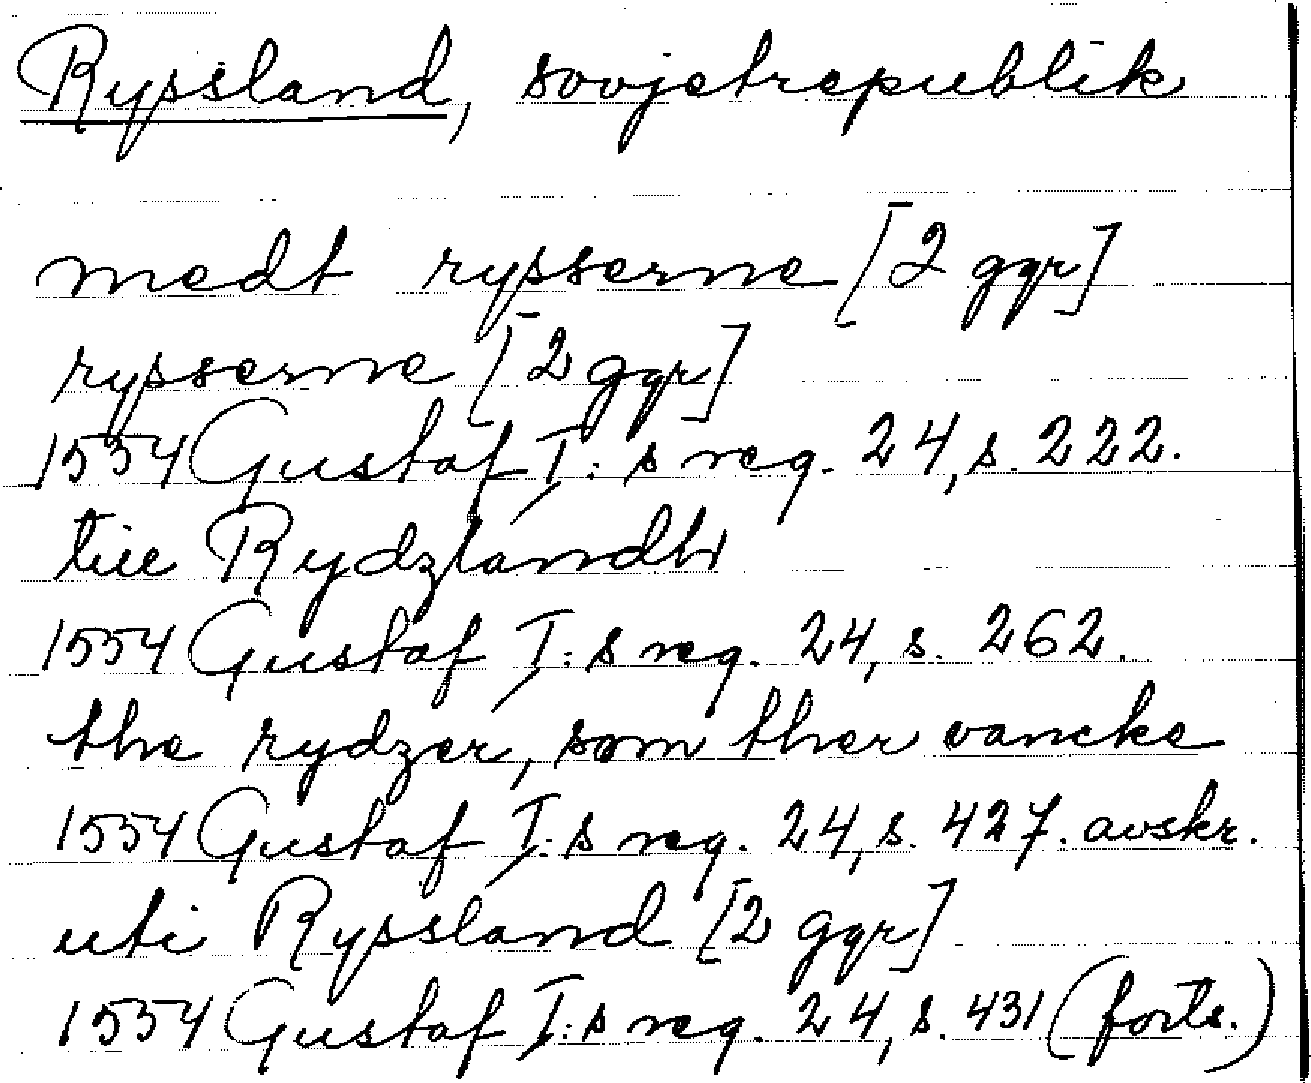 Ryssland, sovjetrepublik
medt rysserne [2 ggr]
rysserne [2 ggr]
1554 Gustaf I:s reg. 24, s. 222.
till Rydzlandh
1554 Gustaf I:s reg. 24, s. 262.
the rydzer, som ther vancke
1554 Gustaf I:s reg. 24, s. 427. avskr.
uti Ryssland [2 ggr]
1554 Gustaf I:s reg. 24, s. 431 (forts.)